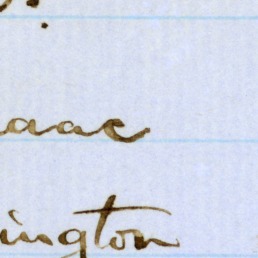 aac
ington